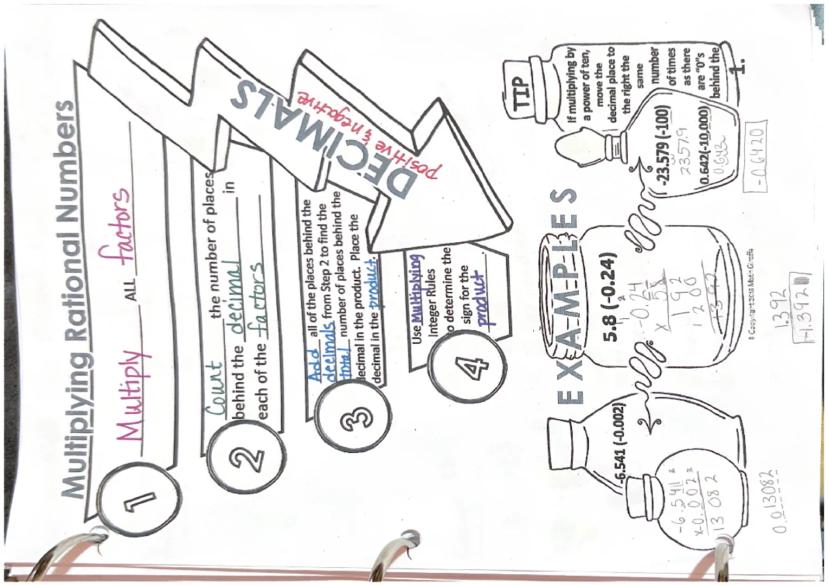 Multiplying Rational Numbers
DECIMALS
positive & negative
1
Multiply ALL factors
2
Count the number of places
behind the decimal in
each of the factors
3
Add all of the places behind the
decimals from Step 2 to find the
total number of places behind the
decimal in the product. Place the
decimal in the product.
4
Use Multiplying
Integer Rules
to determine the
sign for the
product
EXAMPLES
-6.541 (-0.002)
-6.541
x-0.002
13082
0.013082
5.8 (-0.24)
-0.24
x 58
192
1200
1392
1.392
-1.392
© Copyright 2015 Math Giraffe
TIP
If multiplying by
a power of ten,
move the
decimal place to
the right the
same
number
of times
as there
are "0"s
behind the
1.
-23.579 (-100)
2357.9
0.642(-10,000)
0.642
-0.6420